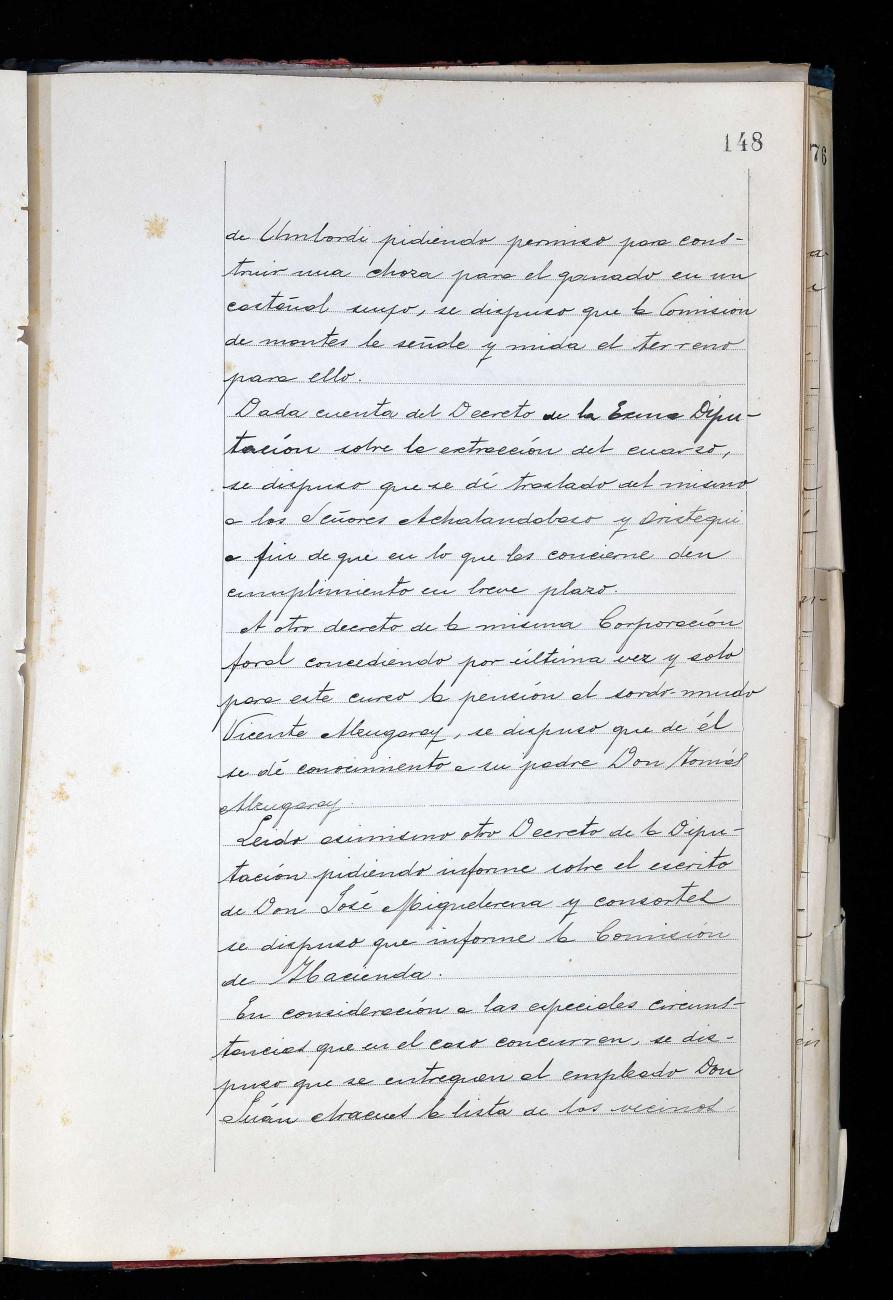 148
76
de Umbordi pidiendo permiso para cons-
truir una choza para el ganado en un
castañal suyo, se dispuso que la Comision
de montes le señale y mida el terreno
para ello.
Dada cuenta del Decreto de la Exma Dipu-
tación sobre la extracción del cuarso,
se dispuso que se dé traslado del mismo
a los Señores Achalandabaso y Oristegui
a fin de que en lo que les concierne den
cumplimiento en breve plazo.
A otro decreto de la misma Corporación
foral concediendo por última vez y solo
para este curso la pensión al sordo-mudo
Vicente Alzugaray, se dispuso que de él
se dé conocimiento a su padre Don Tomás
Alzugaray.
Leido asimismo otro Decreto de la Dipu-
tación pidiendo informe sobre el escrito
de Don José Miguelerena y consortes
se dispuso que informe la Comisión
de Hacienda.
En consideración a las especiales circuns-
tancias que en el caso concurren, se dis-
puso que se entreguen al empleado Don
Juán Aracues la lista de los vecinos